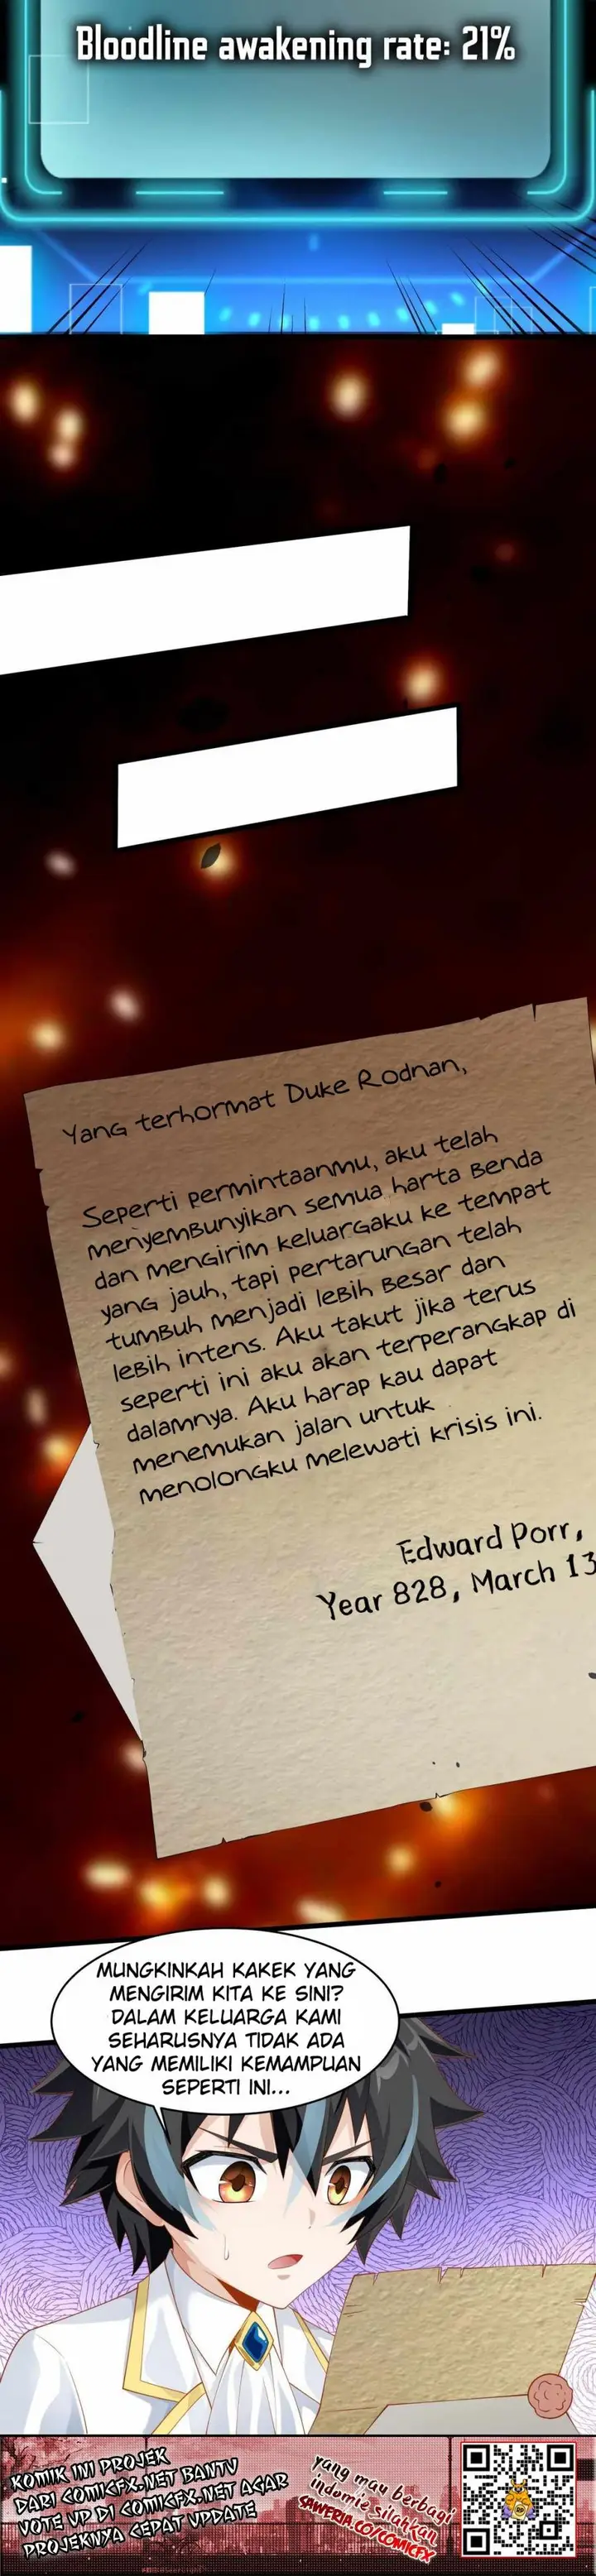 Bloodline awakening rate: 21%
Yang terhormat Duke Rodnan,
Seperti permintaanmu, aku telah
menyembunyikan semua harta benda
dan mengirim keluargaku ke tempat
yang jauh, tapi pertarungan telah
tumbuh menjadi lebih besar dan
lebih intens. Aku takut jika terus
seperti ini aku akan terperangkap di
dalamnya. Aku harap kau dapat
menemukan jalan untuk
menolongku melewati krisis ini.
Edward Porr,
Year 828, March 13
MUNGKINKAH KAKEK YANG
MENGIRIM KITA KE SINI?
DALAM KELUARGA KAMI
SEHARUSNYA TIDAK ADA
YANG MEMILIKI KEMAMPUAN
SEPERTI INI...
KOMIK INI PROJEK
DARI COMICFX.NET BANTU
VOTE UP DI COMICFX.NET AGAR
PROJEKNYA CEPAT UPDATE
yang mau berbagi
indomie silahkan
SAWERIA.CO/COMICFX